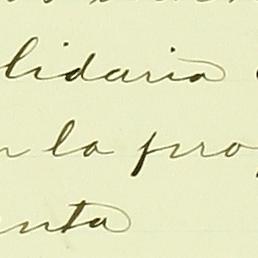 lidaria
n la pro
enta